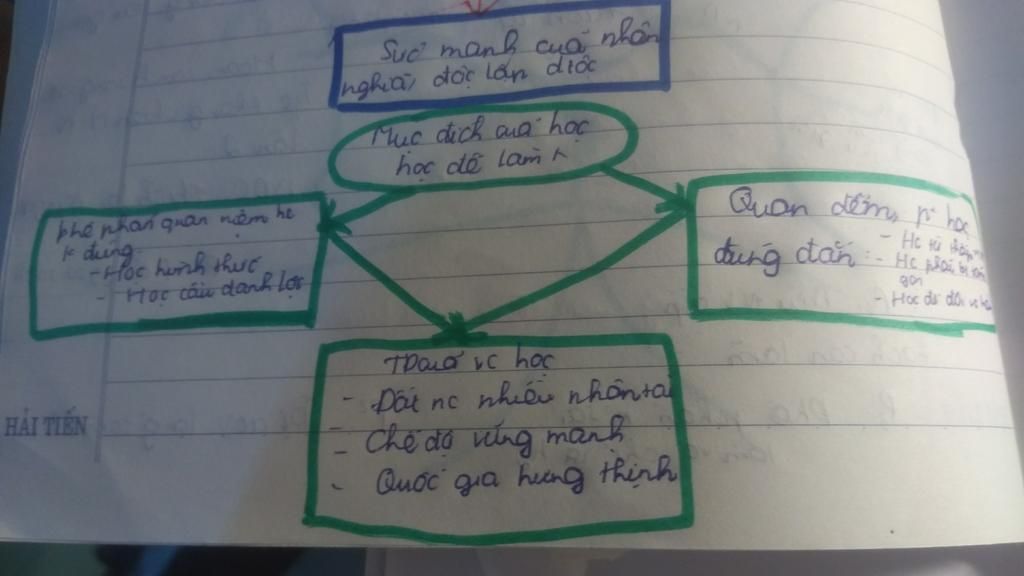 Sức mạnh của nhân
nghĩa, độc lập dtộc
Mục đích của học
học để làm
phê phán quan niệm hc
k đúng
- Học hình thức
- Học cầu danh lợi
Quan điểm, p² học
đúng đắn:
- Hc từ thấp
- Hc phải
gọn
- Học đi đôi
TD của vc học
- Đất nc nhiều nhân tài
- Chế độ vững mạnh
- Quốc gia hưng thịnh
HẢI TIẾN